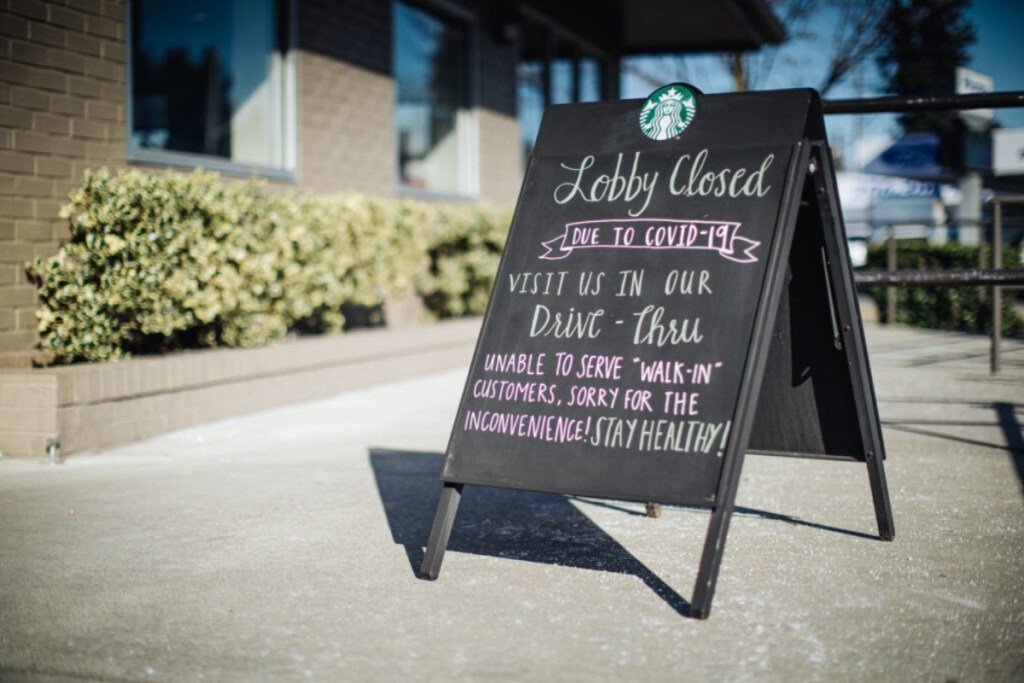 Lobby Closed
DUE TO COVID-19
VISIT US IN OUR
Drive-Thru
UNABLE TO SERVE "WALK-IN"
CUSTOMERS, SORRY FOR THE
INCONVENIENCE! STAY HEALTHY!